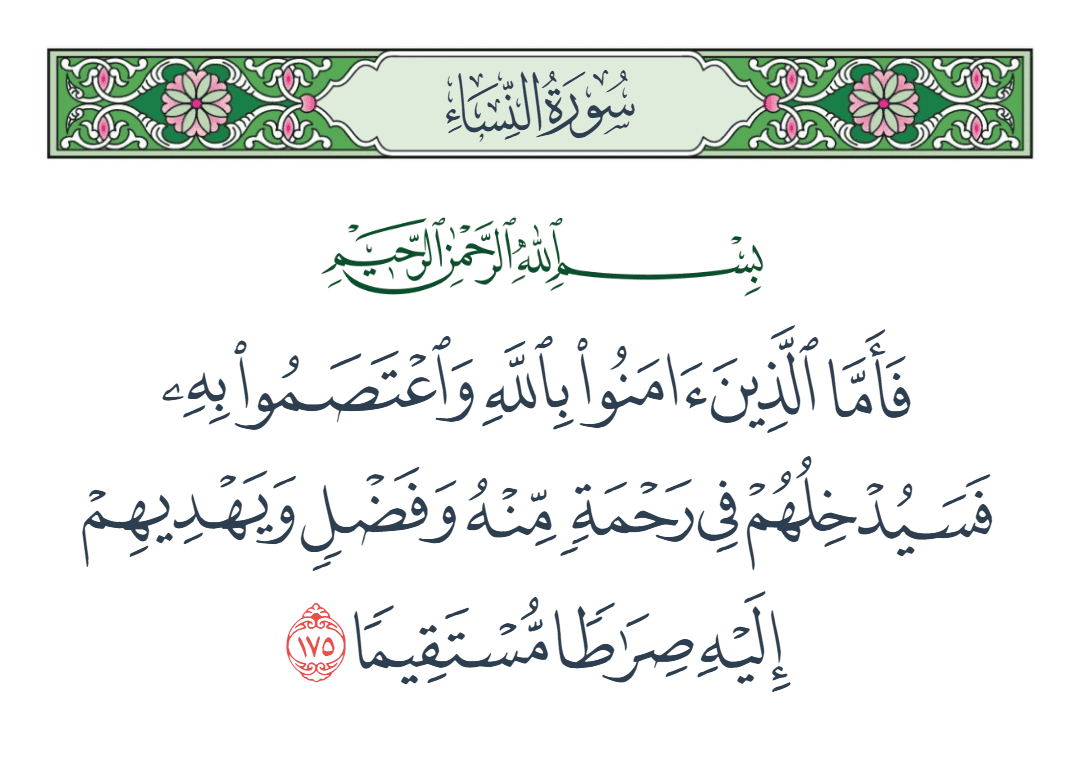 سُورَةُ النِّسَاءِ
بِسْمِ ٱللَّهِ ٱلرَّحْمَٰنِ ٱلرَّحِيمِ
فَأَمَّا ٱلَّذِينَ ءَامَنُوا۟ بِٱللَّهِ وَٱعْتَصَمُوا۟ بِهِۦ
فَسَيُدْخِلُهُمْ فِى رَحْمَةٍ مِّنْهُ وَفَضْلٍ وَيَهْدِيهِمْ
إِلَيْهِ صِرَٰطًا مُّسْتَقِيمًا ١٧٥